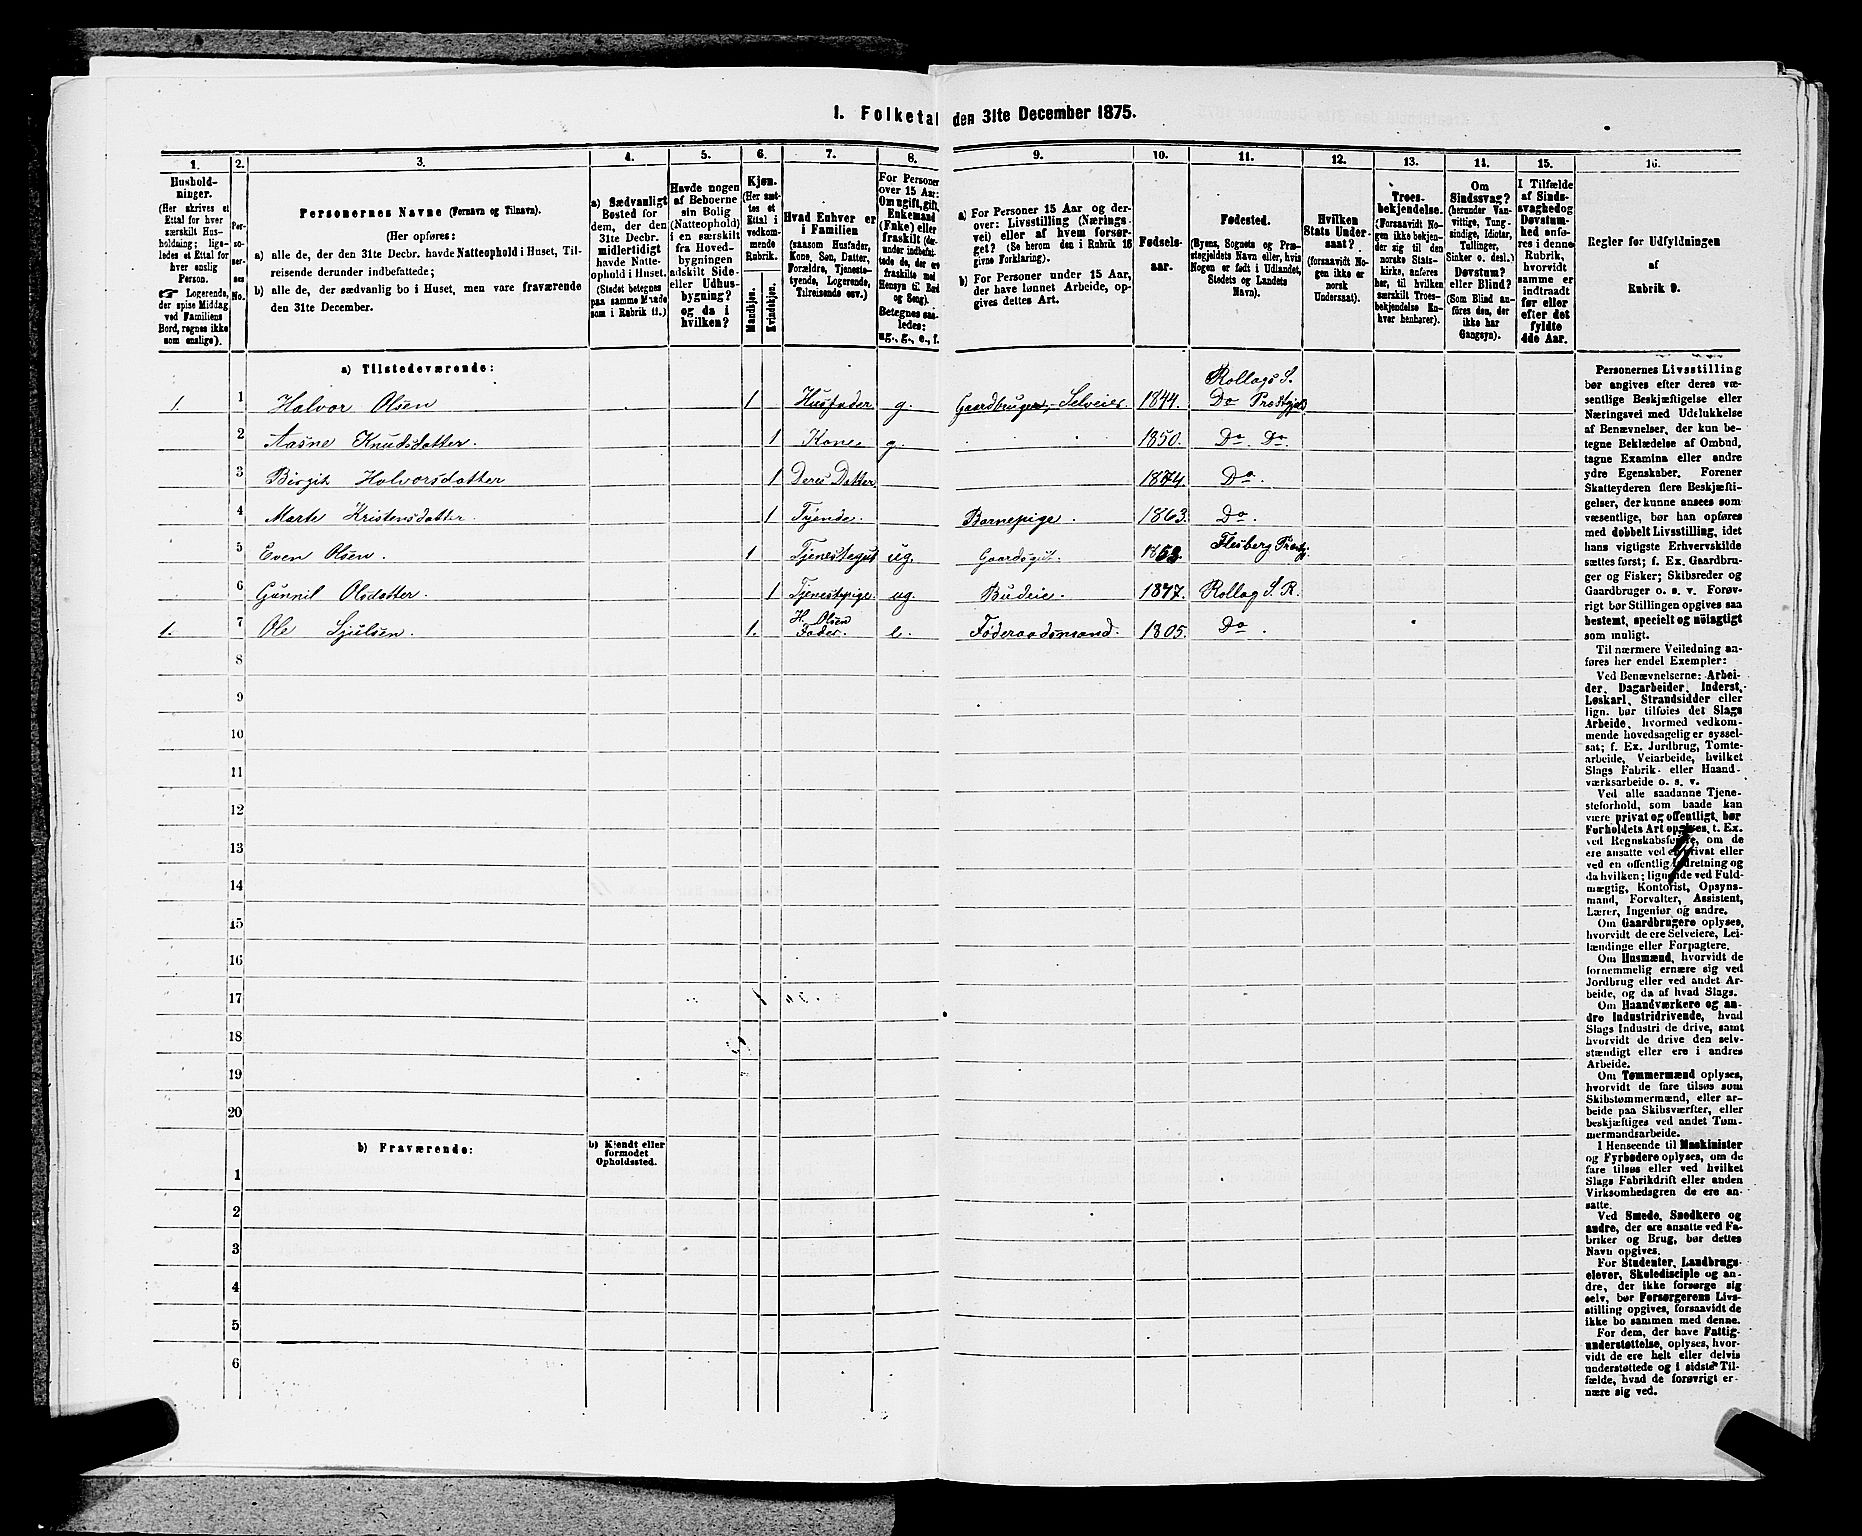 1. Folketal den 31te December 1875.
1. 2. 3. 4. 5. 6. 7. 8. 9. 10. 11. 12. 13. 14. 15. 16.
Hushold-
ninger.
(Her skrives et
Ettal for hver
særskilt Hus-
holdning; lige-
ledes et Ettal for
hver enslig
Person.
☞ Logerende,
der spise Middag
ved Familiens
Bord, regnes ikke
som enslige).
Per-
so-
ner-
nes
No.
Personernes Navne (Fornavn og Tilnavn).
(Her opføres:
a) alle de, der den 31te Decbr. havde Natteophold i Huset, Til-
reisende derunder indbefattede;
b) alle de, der sædvanlig bo i Huset, men vare fraværende
den 31te December.
a) Sædvanligt
Bosted for
dem, der den
31te Decbr.
midlertidigt
havde Natte-
ophold i Huset.
(Stedet betegnes
paa samme Maade
som i Rubrik 11.)
Havde nogen
af Beboerne
sin Bolig
(Natteophold)
i en særskilt
fra Hoved-
bygningen
adskilt Side-
eller Udhus-
bygning?
og da i
hvilken?
Kjøn.
(Her sæt-
tes et
Ettal i
vedkom-
mende
Rubrik.
Mandkjøn.
Kvindekjøn.
Hvad Enhver er
i Familien
(saasom Husfader,
Kone, Søn, Datter,
Forældre, Tjeneste-
tyende, Logerende,
Tilreisende osv.)
For Personer
over 15 Aar:
Om ugift, gift,
Enkemand
(Enke) eller
fraskilt (der-
under indbefat-
tede de, der ere
fraskilte med
Hensyn til Bord
og Seng).
Betegnes saa-
ledes:
ug., g., e., f.
a) For Personer 15 Aar og der-
over: Livsstilling (Nærings-
vei) eller af hvem forsør-
get? (Se herom den i Rubrik 16
givne Forklaring).
b) For Personer under 15 Aar,
der have lønnet Arbeide, op-
gives dettes Art.
Fødsels-
aar.
Fødested.
(Byens, Sognets og Præ-
stegjeldets Navn eller, hvis
Nogen er født i Udlandet,
Stedets og Landets
Navn).
Hvilken
Stats Under-
saat?
(forsaavidt No-
gen ikke er
norsk
Undersaat).
Troes-
bekjendelse.
(Forsaavidt No-
gen ikke bekjen-
der sig til den
norske Stats-
kirke, anføres
her, til hvilken
særskilt Troes-
bekjendelse En-
hver henhører).
Om
Sindssvag?
(herunder Van-
vittige, Tung-
sindige, Idioter,
Tullinger,
Sinker o. desl.)
Døvstum?
eller Blind?
(Som Blind an-
føres den, der
ikke har
Gangsyn).
I Tilfælde
af Sinds-
svaghed og
Døvstum-
hed anfø-
res i denne
Rubrik,
hvorvidt
samme er
indtraadt
før eller
efter det
fyldte
4de Aar.
Regler for Udfyldningen
af
Rubrik 9.
a) Tilstedeværende:
1. 1 Halvor Olsen 1 Husfader g. Gaardbruger, Selveier. 1844. Rollags S. Do Præstgjeld
2 Aasne Knudsdatter. 1 Kone g. 1850. Do. Do.
3 Birgit Halvorsdatter 1 Deres Datter 1874. Do.
4 Marte Kristensdatter. 1 Tyende. Barnepige. 1863. Do.
5 Even Olsen. 1 Tjenestegut ug. Gaardsgut. Flesberg Prestgj.
6 Gunnil Olsdatter. 1 Tjenestpige. ug. Budeie. 1847. Rollag S. R.
1. 7 Ole Sjulsen. 1. H. Olsen Fader. e. Føderaadsmand. 1805. Do.
8
9
10
11
12
13
14
15
16
17
18
19
20
b) Fraværende:
b) Kjendt eller
formodet
Opholdssted.
1
2
3
4
5
6
Personernes Livsstilling
bør angives efter deres væ-
sentlige Beskjæftigelse eller
Næringsvei med Udelukkelse
af Benævnelser, der kun be-
tegne Beklædelse af Ombud,
tagne Examina eller andre
ydre Egenskaber. Forener
Skatteyderen flere Beskjæfti-
gelser, der kunne ansees som
væsentlige, bør han opføres
med dobbelt Livsstilling, idet
hans vigtigste Erhvervskilde
sættes først; f. Ex. Gaardbru-
ger og Fisker; Skibsreder og
Gaardbruger o. s. v. Forøv-
rigt bør Stillingen opgives saa
bestemt, specielt og nøiagtigt
som muligt.
Til nærmere Veiledning an-
føres her endel Exempler:
Ved Benævnelserne: Arbei-
der, Dagarbeider, Inderst,
Løskarl, Strandsidder eller
lign. bør tilføies det Slags
Arbeide, hvormed vedkom-
mende hovedsagelig er syssel-
sat; f. Ex. Jordbrug, Tomte-
arbeide, Veiarbeide, hvilket
Slags Fabrik- eller Haand-
værksarbeide o. s. v.
Ved alle saadanne Tjene-
steforhold, som baade kan
være privat og offentligt, bør
Forholdets Art opgives, t. Ex.
ved Regnskabsførere, om de
ere ansatte ved en privat eller
ved en offentlig Indretning og
da hvilken; lignende ved Fuld-
mægtig, Kontorist, Opsyns-
mand, Forvalter, Assistent,
Lærer, Ingeniør og andre.
Om Gaardbrugere oplyses,
hvorvidt de ere Selveiere, Lei-
lændinge eller Forpagtere.
Om Husmænd, hvorvidt de
fornemmelig ernære sig ved
Jordbrug eller ved andet Ar-
beide, og da af hvad Slags.
Om Haandværkere og an-
dre Industridrivende, hvad
Slags Industri de drive, samt
hvorvidt de drive den selv-
stændigt eller ere i andres
Arbeide.
Om Tømmermænd oplyses,
hvorvidt de fare tilsøs som
Skibstømmermænd, eller ar-
beide paa Skibsværfter, eller
beskjæftiges ved andet Tøm-
mermandsarbeide.
I Henseende til Maskinister
og Fyrbødere oplyses, om de
fare tilsøs eller ved hvilket
Slags Fabrikdrift eller anden
Virksomhedsgren de ere an-
satte.
Ved Smede, Snedkere og
andre, der ere ansatte ved Fa-
briker og Brug, bør dettes
Navn opgives.
For Studenter, Landbrugs-
elever, Skoledisciple og an-
dre, der ikke forsørge sig
selv, bør Forsørgerens Livs-
stilling opgives, forsaavidt de
ikke bo sammen med denne.
For dem, der have Fattig-
understøttelse, oplyses, hvor-
vidt de ere helt eller delvis
understøttede og i sidste Til-
fælde, hvad de forøvrigt er-
nære sig ved.